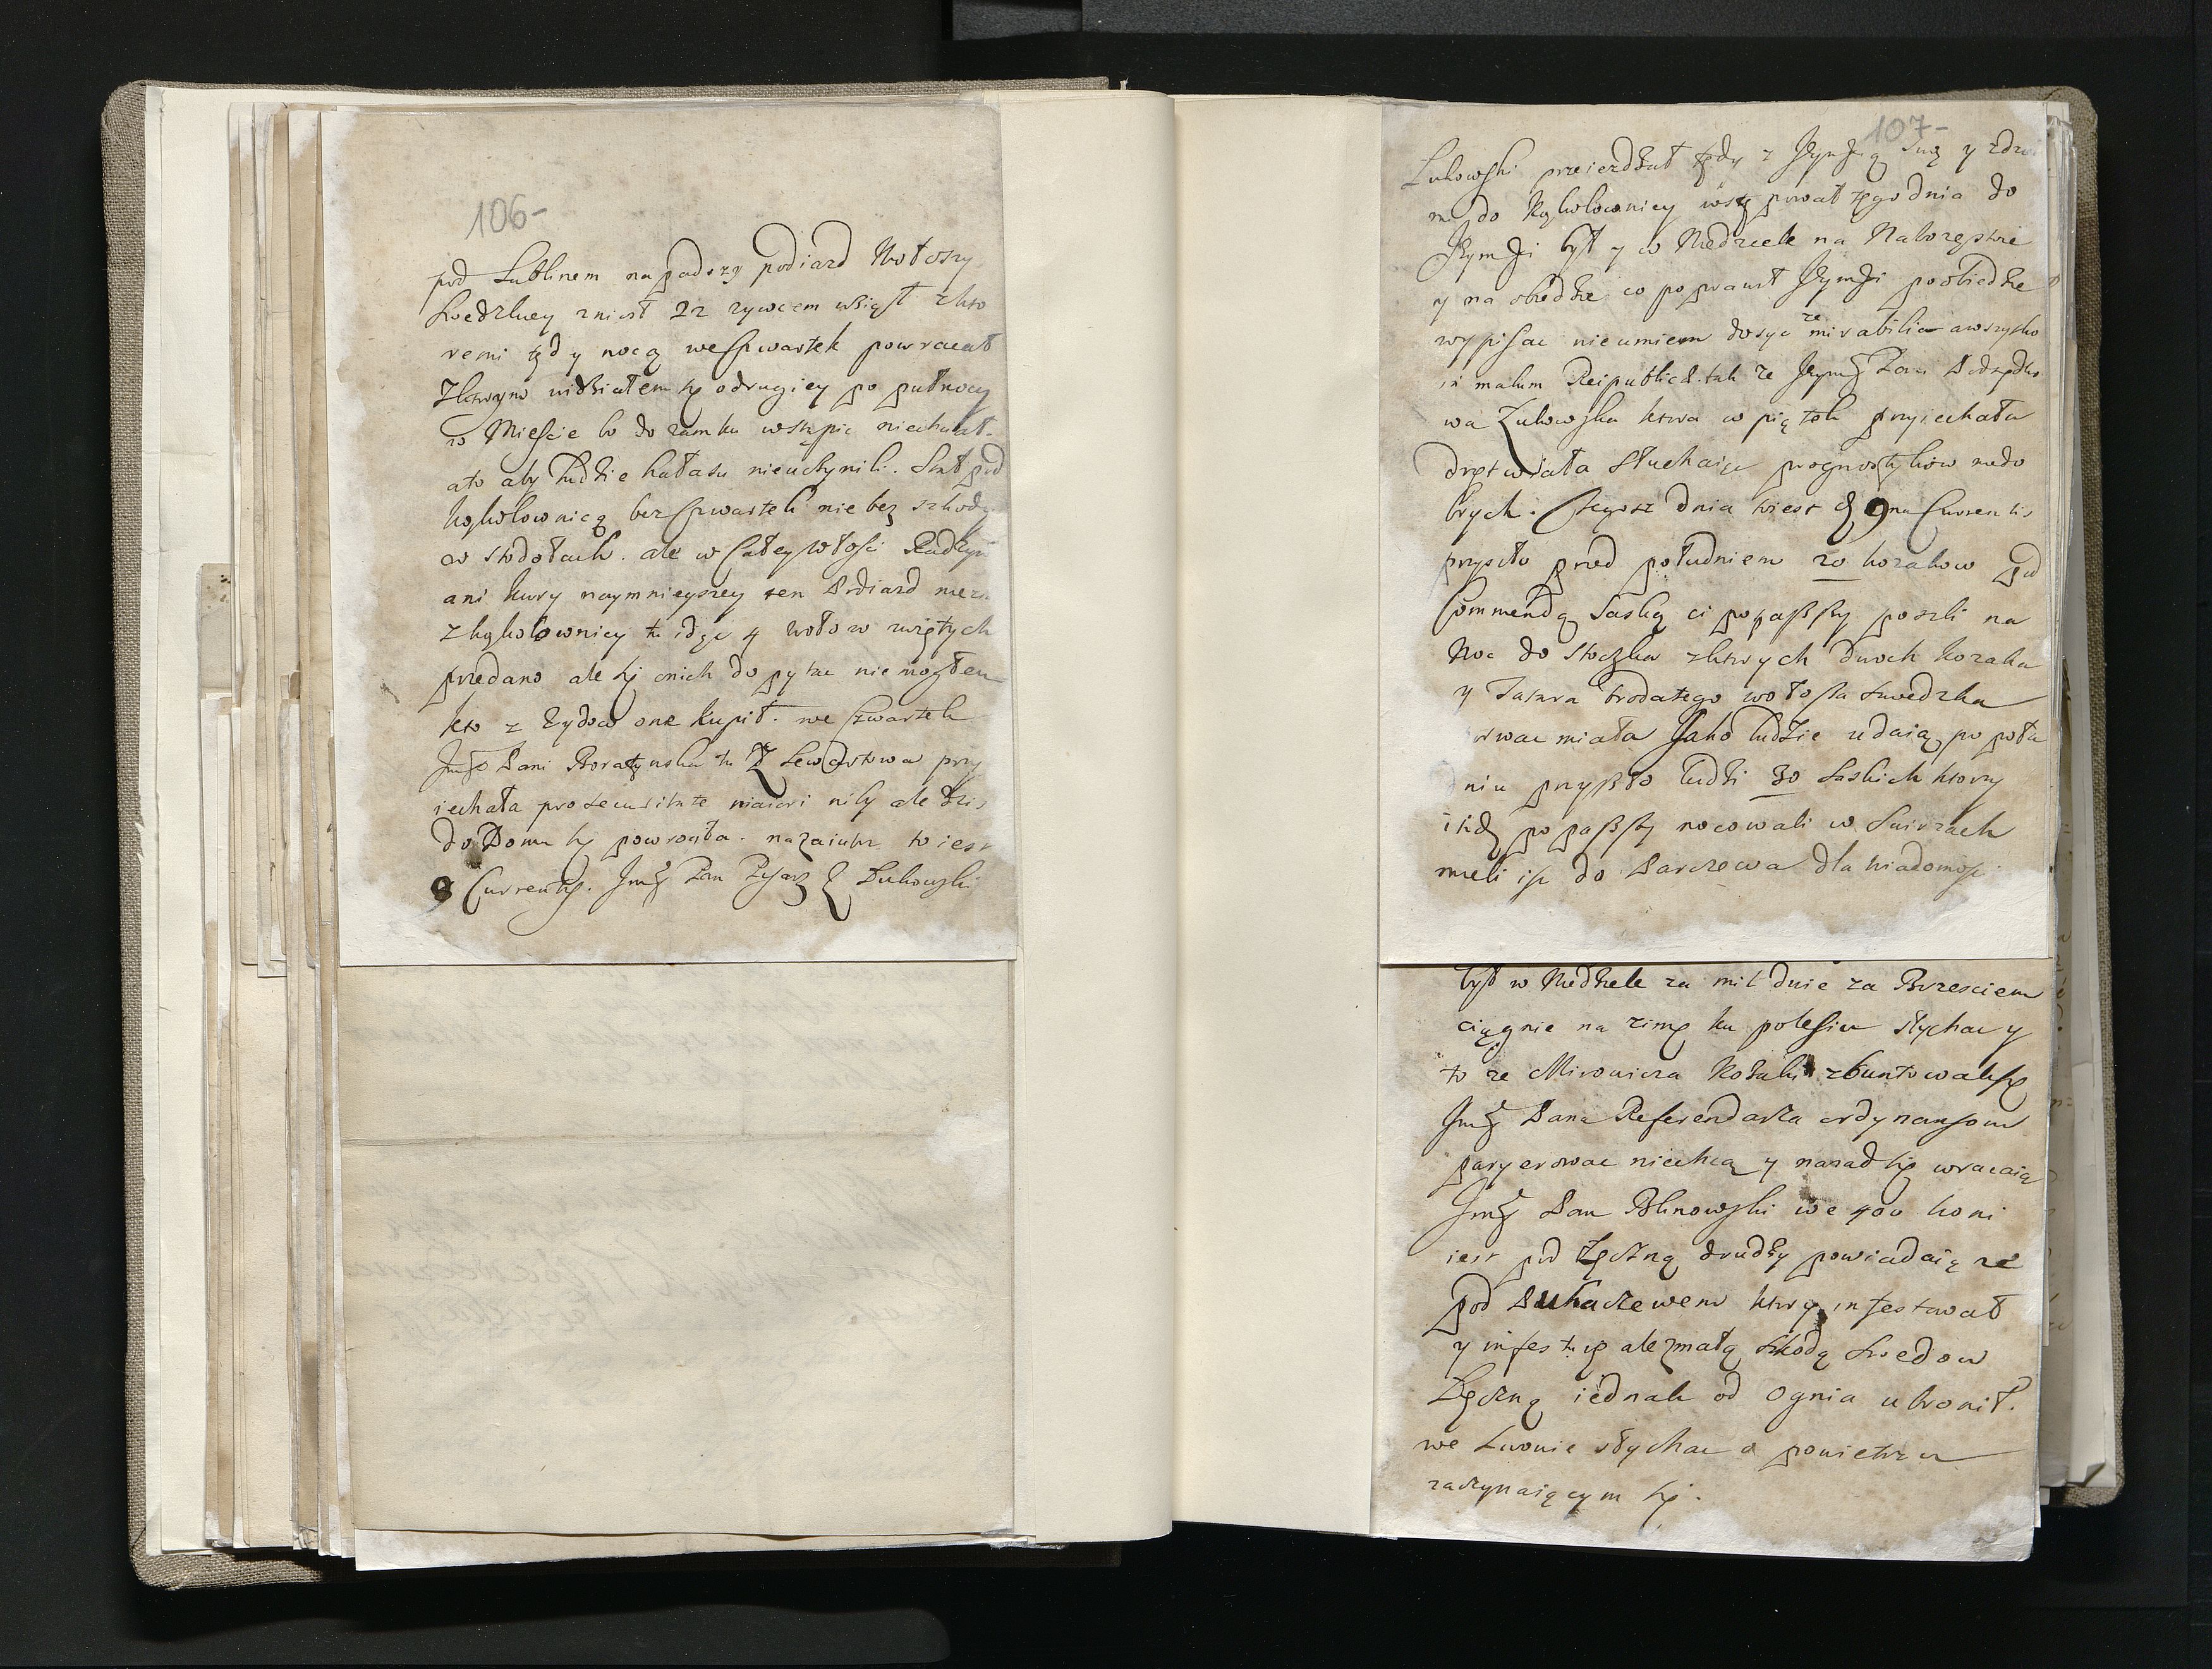 106-
pod Lublinem napadszy podiazd Wołoszy
Szwedzkiey zniosł 22 zywcem wsiął zkto
remi tędy nocą we Czwartek powracał
Zktorym widziałem się o drugiey po pułnocy
w Mieście bo do zamku wstąpic niechciał.
ato aby ludzie hałasu nieuczynili. Stał pod
Kąkolownicą bez Czwartek nie bez szkody
w stodołach. ale w całey włości Radzyn
ani kury naymnieyszey ten Podiazd
z Kąkolownicy tu idąc 4 wołow wziętych
przedano ale się onich dopytac nie mogłem
kto z Zydow one kupił. we Czwartek
Jmśo Pani Boratynska tu Z Lewartowa przy
iechała pro securitate maiori niby ale dzis
do Domu się powrociła. nazaiutrz to iest
9 Currentis. Jmś Pan Pisarz Ł Łukowski
107-
Łukowski przeiezdzał tędy z Jeymścią Swą y
m do Kąkolownicy wstępował tego dnia do
Jeymści był y w Niedziele na Nabozęstwie
y na obiedzie co poprawił Jeymści poobiedzie
wypisac nieumiem dosyc ze mirabilia awszystko
in malum Reipublicae. tak ze Jeymś Pani Podsędko
wa Zukowska ktora w piątek przyiechała
drętwiała słuchaiąc prognostykow niedo
brych. Tegosz dnia to iest 9 Currentis
przyszło przed południem 20 kozakow pod
Commendą Saską ci popassszy poszli na
Noc do Stoczka z ktorych dwoch kozaka
y Tatara brodatego wołosza szwedzka
urwac miała Jako ludzie udaią po połu
dniu przyszło ludzi 30 Saskich ktorzy
popassszy nocowali w Swirzach
mieli isc do Parczewa dla wiadomosc
był w Niedziele za mil dwie za Brzesciem
ciągnie na zimę ku polesiu słychac y
to ze Mirowicza Kozaki zbuntowalisię
Jmś Pana Referendarza ordynansom
paryerowac niechcą y nazad się wracaią
Jmś Pan Blinowski we 400 koni
iest pod Łęczną drudzy powiadaią ze
pod Puhaczewem ktory infestował
y infestuie alezmałą szkodą Szwedow
Łęczną iednak od Ognia ubronił.
we Lwowie słychac o powietrzu
zaczynaiącym się.